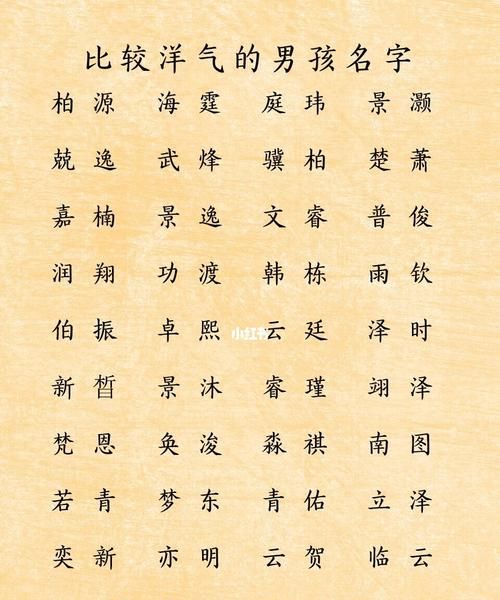 比较洋气的男孩名字
柏源 海霆 庭玮 景灏
兢逸 武烽 骥柏 楚萧
嘉楠 景逸 文睿 普俊
润翔 功渡 韩栋 雨钦
伯振 卓熙 云廷 泽时
小红书
新晳 景沐 睿瑾 翊泽
梵恩 奂浚 淼祺 南图
若青 梦东 青佑 立泽
奕新 亦明 云贺 临云